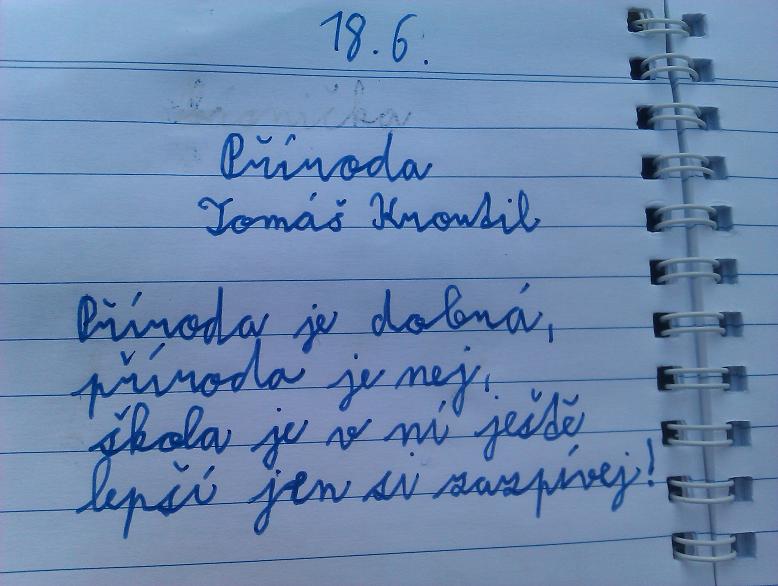 18.6.
Příroda
Tomáš Kroutil
Příroda je dobrá,
příroda je nej,
škola je v ní ještě
lepší jen si zazpívej!